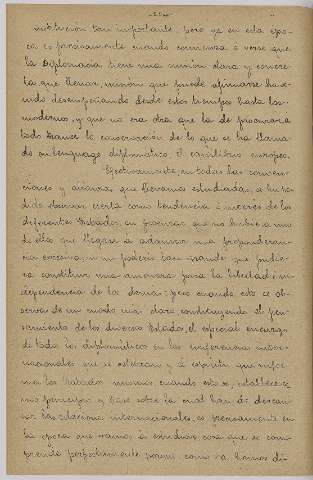 institucion tan importante, pero ya en esta epo-
ca es precisamente cuando comienza a verse que
la Diplomacia tiene una misión clara y concre-
ta que llenar, misión que puede afirmarse ha ve-
nido desempeñando desde estos tiempos hasta los
modernos, y que no era otra que la de procurar a
todo trance la conservación de lo que se ha llama-
do en lenguage diplomatico el equilibrio europeo.
Efectivamente, en todas las conven-
ciones y alianzas que llevamos estudiadas, se ha po-
dido observar cierta como tendencia e interés de los
diferentes Estados, en procurar que no hubiera uno
de ellos que llegase a adquirir una preponderan-
cia excesiva, ni un poderío tan grande que pudie-
ra constituir una amenaza para la libertad e in-
dependencia de los demas; pero cuando esto se ob-
serva de un modo mas claro constituyendo el pen-
samiento de los diversos Estados, el especial encargo
de todos los diplomáticos en las conferencias inter-
nacionales que se celebran y el espíritu que infor-
ma los tratados mismos, cuando esto se establece co-
mo principio y base sobre la cual han de descan-
sar las relaciones internacionales, es precisamente en
la época que vamos a estudiar, cosa que se com-
prende perfectamente porque como ya hemos di-